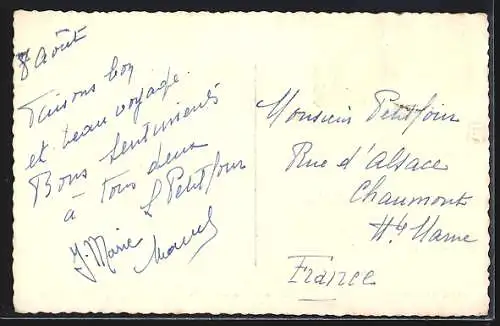 8 Août
Faisons bon
et beau voyage.
Bons sentiments
à tous deux
L Petitfour
J. Marie
Marcel
Monsieur Petitfour
Rue d'Alsace
Chaumont
Hte Marne
France